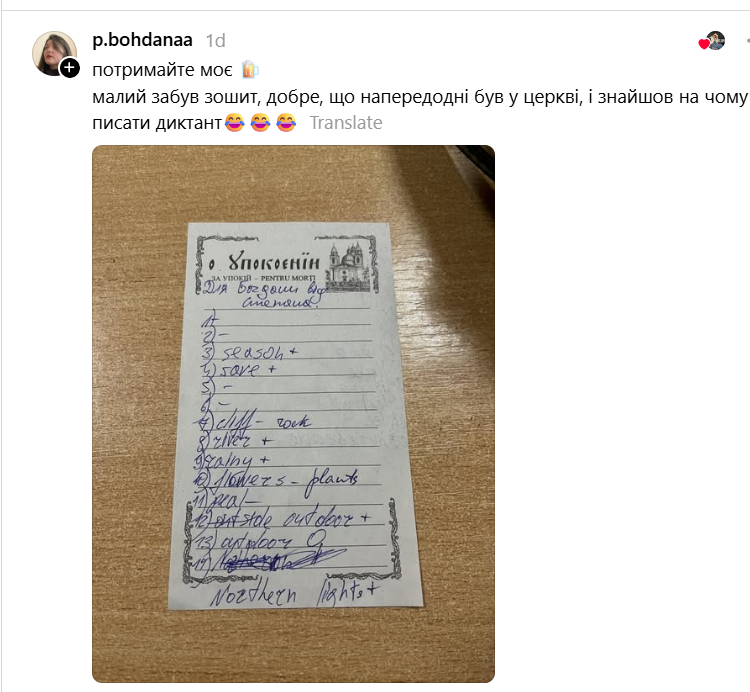 p.bohdanaa 1d
потримайте моє 🍺
малий забув зошит, добре, що напередодні був у церкві, і знайшов на чому
писати диктант😂 😂 😂 Translate
о Упокоєнїи
ЗА УПОКІЙ – PENTRU MORTI
Для Богдани від
Степана.
1) -
2) -
3) season +
4) save +
5) -
6 -
7) cliff - rock
8) river +
9) rainy +
10) flowers - plants
11) -
12) outside outdoor +
13) outdoor
14)
Northern lights +